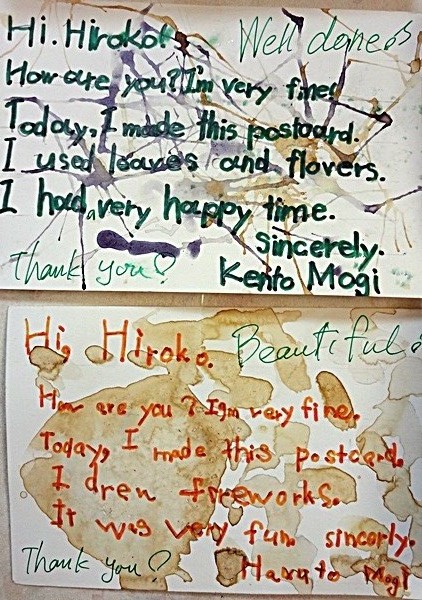 Hi. Hiroko! Well done!
How are you? I'm very fine!
Today, I made this postcard.
I used leaves and flovers.
I had a very happy time.
sincerely.
Thank you♡ Kento Mogi
Hi, Hiroko. Beautiful!
How are you? I'm very fine.
Today, I made this postcard.
I dren fireworks.
It was very fun. sincorly.
Thank you♡ Haruto Mogi